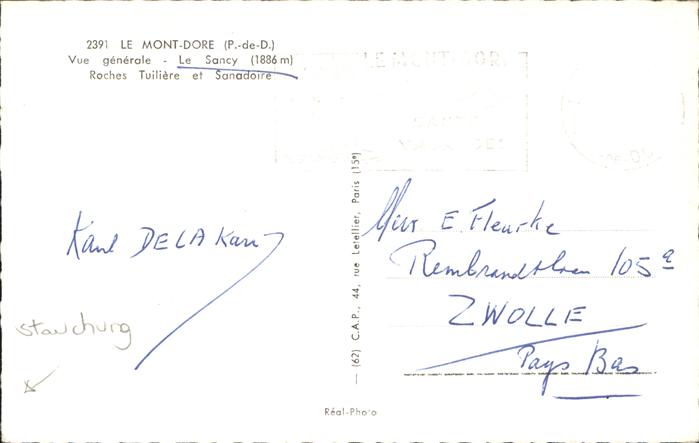 2391 LE MONT-DORE (P.-de-D.)
Vue générale - Le Sancy (1886 m)
Roches Tuilière et Sanadoire
LE MONT-DORE
(62) C.A.P., 44, rue Letellier, Paris (15e)
E. Fleurke
Rembrandtlaan 105 a
ZWOLLE
Pays Bas
stauchung
Réal-Photo